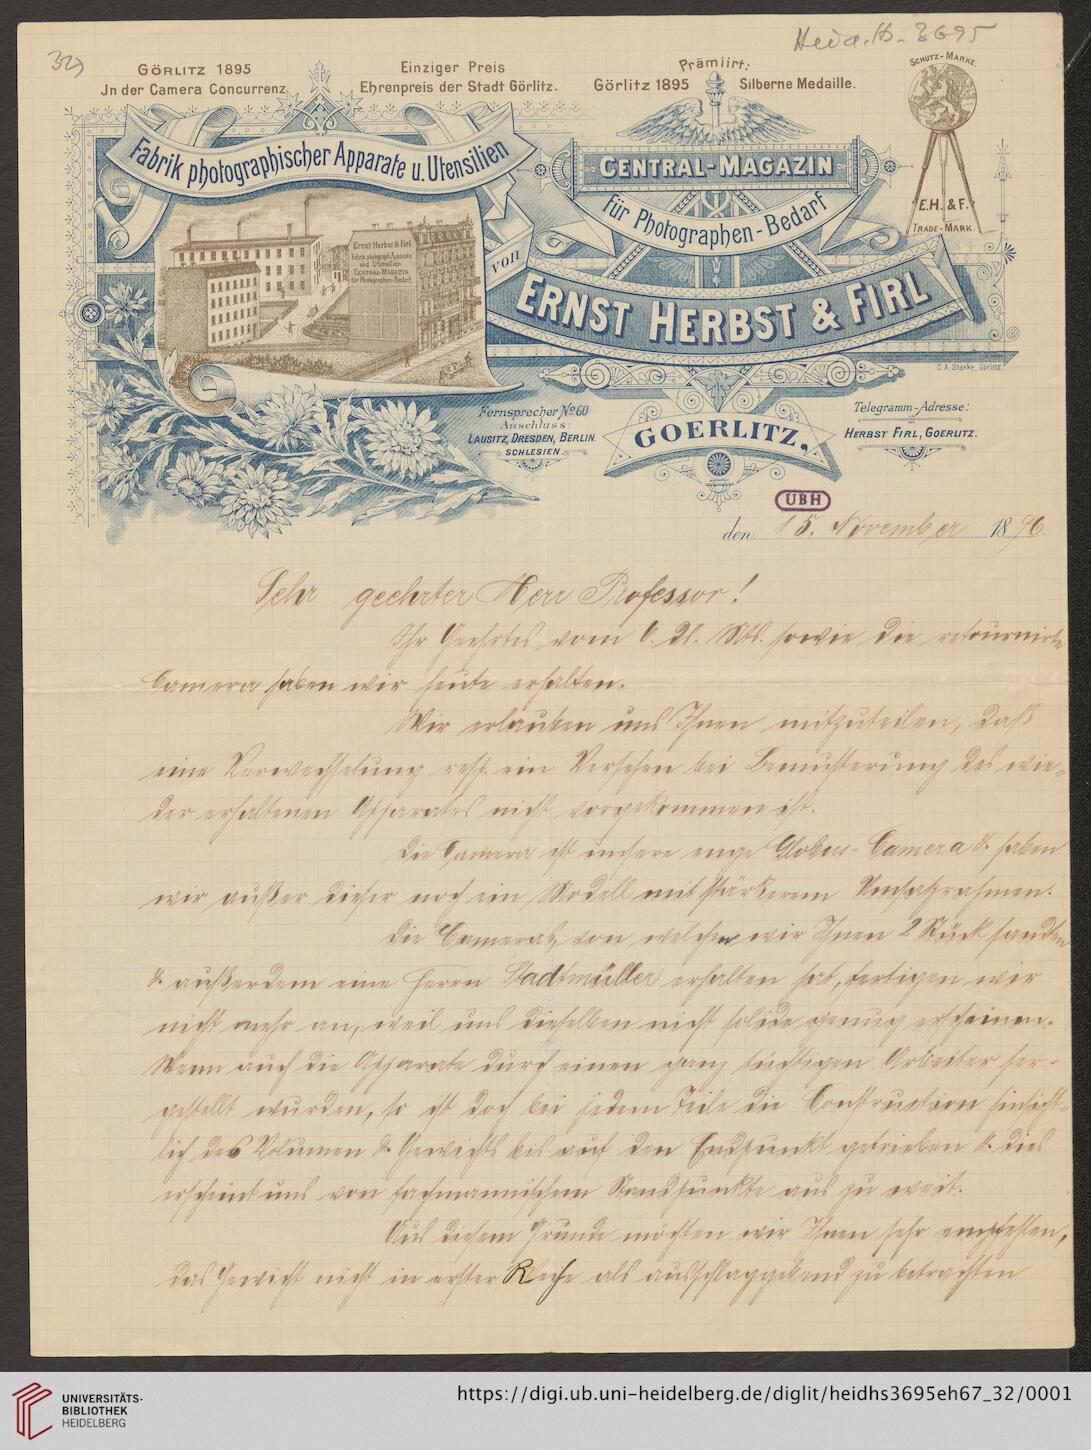 32)
Heid. Hs. 3695
Görlitz 1895
Jn der Camera Concurrenz
Einziger Preis
Ehrenpreis der Stadt Görlitz.
Prämiirt:
Görlitz 1895 Silberne Medaille.
Schutz-Marke.
E.H. & F.
Trade-Mark.
Fabrik photographischer Apparate u. Utensilien
von
Central-Magazin
für Photographen-Bedarf
Ernst Herbst & Firl
Ernst Herbst & Firl
Fabrik photograph. Apparate
und Utensilien
Central-Magazin
für Photographen-Bedarf.
C. A. Starke, Görlitz.
Fernsprecher No 60
Anschluss:
Lausitz, Dresden, Berlin.
Schlesien.
Goerlitz,
Telegramm-Adresse:
Herbst Firl, Goerlitz.
UBH
den 15. November 1896.
Sehr geehrter Herr Professor!
Ihr Geehrtes vom 6. dl. Mts. sowie die retournirte
Camera haben wir heute erhalten.
Wir erlauben uns Ihnen mitzuteilen, daß
eine Verwechselung resp. ein Versehen bei Bemusterung des wie-
der erhaltenen Apparates nicht vorgekommen ist.
Die Camera ist unsere enge Globus-Camera & haben
wir außer dieser noch ein Modell mit stärkerem Umsatzrahmen.
Die Cameras, von welchen wir Ihnen 2 Stück sandten
& außerdem eine Herrn Stadtmüller erhalten hat, fertigen wir
nicht mehr an, weil uns dieselben nicht solide genug erscheinen.
Wenn auch die Apparate durch einen ganz tüchtigen Arbeiter her-
gestellt wurden, so ist doch bei jedem Teile die Construction hinsicht-
lich des Volumen & Gewichts bis auf den Endpunkt getrieben & dies
erscheint uns von fachmannischem Standpunkte aus zu weit.
Aus diesem Grunde möchten wir Ihnen sehr empfehlen,
das Gewicht nicht in erster Reihe als ausschlaggebend zu betrachten
UNIVERSITÄTS-
BIBLIOTHEK
HEIDELBERG
https://digi.ub.uni-heidelberg.de/diglit/heidhs3695eh67_32/0001